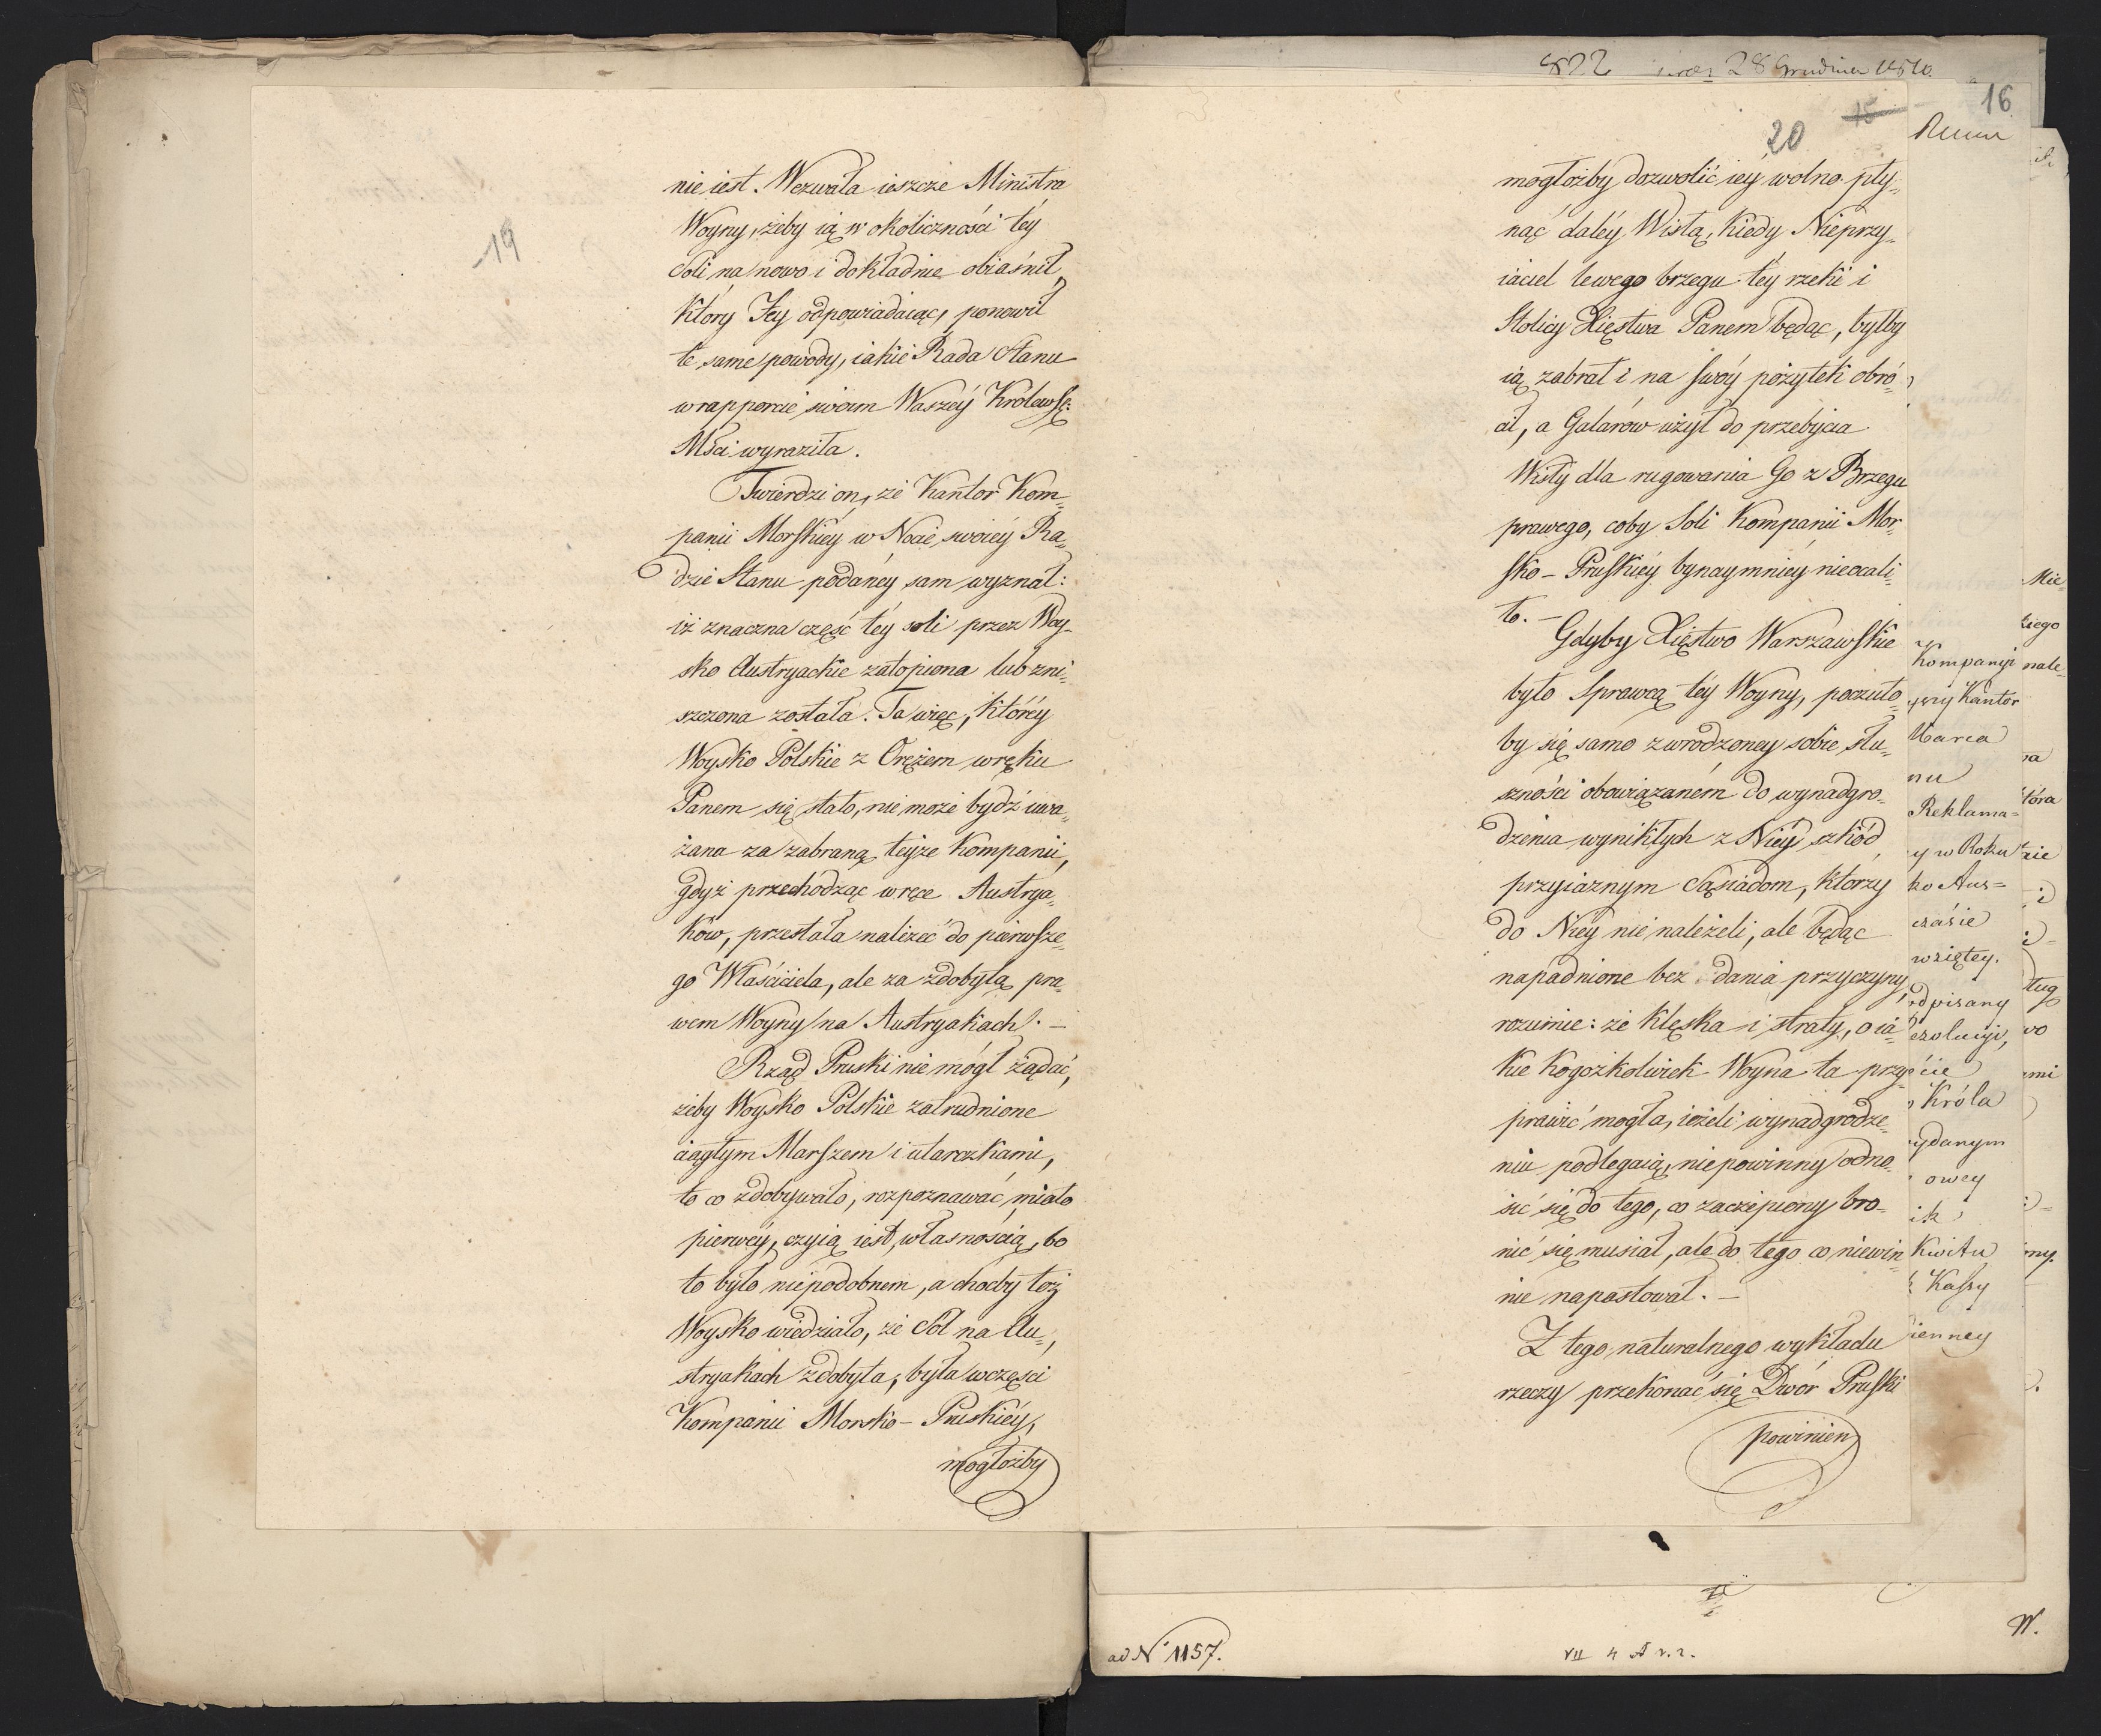 19
nie iest. Wezwała ieszcze Ministra
Woyny, żeby ią w okoliczności téy
Soli na nowo i dokładnie obiaśnił,
Który Jey odpowiadaiąc, ponowił
te same powody, iakie Rada Stanu
w rapporcie swoim Waszéy Królewsk:
Mści wyraziła.
Twierdzi on, że Kantor Kom„
panii Morskiéy w Nocie swoiéy Ra„
dzie Stanu podanéy sam wyznał:
iż znaczna część téy soli przez Woy„
sko Austryackie zatopiona lub zni„
szczona została. Ta więc, któréy
Woysko Polskie z Orężem w ręku
Panem się stało, nie może bydź uwa„
żana za zabraną teyże Kompanii,
gdyż przechodząc w ręce Austrya„
ków, przestała należeć do pierwsze„
go Właściciela, ale za zdobytą pra„
wem Woyny na Austryakach. —
Rząd Pruski nie mógł żądać,
żeby Woysko Polskie zatrudnione
ciągłym Marszem i utarczkami,
to co zdobywało, rozpoznawać miało
pierwéy, czyią iest własnością, bo
to było niepodobnem, a choćby też
Woysko wiedziało, że Sól na Au„
stryakach zdobyta, była w części
Kompanii Morsko - Pruskiéy,
mogłożby
822 28 Grudnia 1810.
16
15
20
mogłożby dozwolić iéy wolno pły„
nąć daléy Wisłą, kiedy Nieprzy„
iaciel lewego brzegu téy rzeki i
Stolicy Xięstwa Panem będąc, byłby
ią zabrał i na swóy pożytek obró„
cił, a Galarów użył do przebycia
Wisły dla rugowania Go z Brzegu
prawego, coby Soli Kompanii Mor„
sko - Pruskiéy bynaymniéy nieocali„
ło. —
Gdyby Xięstwo Warszawskie
było Sprawcą téy Woyny, poczuło„
by się samo z wrodzoney sobie słu„
szności obowiązaném do wynadgro„
dzenia wynikłych z Niéy szkód,
przyiaznym Sąsiadom, którzy
do Niéy nie należeli, ale będąc
napadnione bez dania przyczyny,
rozumie: że klęska i straty, o ia„
kie kogożkolwiek Woyna ta przy„
prawić mogła, ieżeli wynadgrodze„
niu podlegaią, niepowinny odno„
sić się do tego, co zaczepiony bro„
nić się musiał, ale do tego co niewin„
nie napastował. —
Z tego naturalnego wykładu
rzeczy przekonać się Dwór Pruski
powinien
Kompanyi
Kantor
Marca
nu
Reklama=
y w Roku
ko Aus=
czasie
wziętey.
odpisany
ezolucyi,
Króla
ydanym
owey
Kwitu
Kassy
ienney
Mie
kiego
nale
która
ług
wo
ad N° 1157.
W.